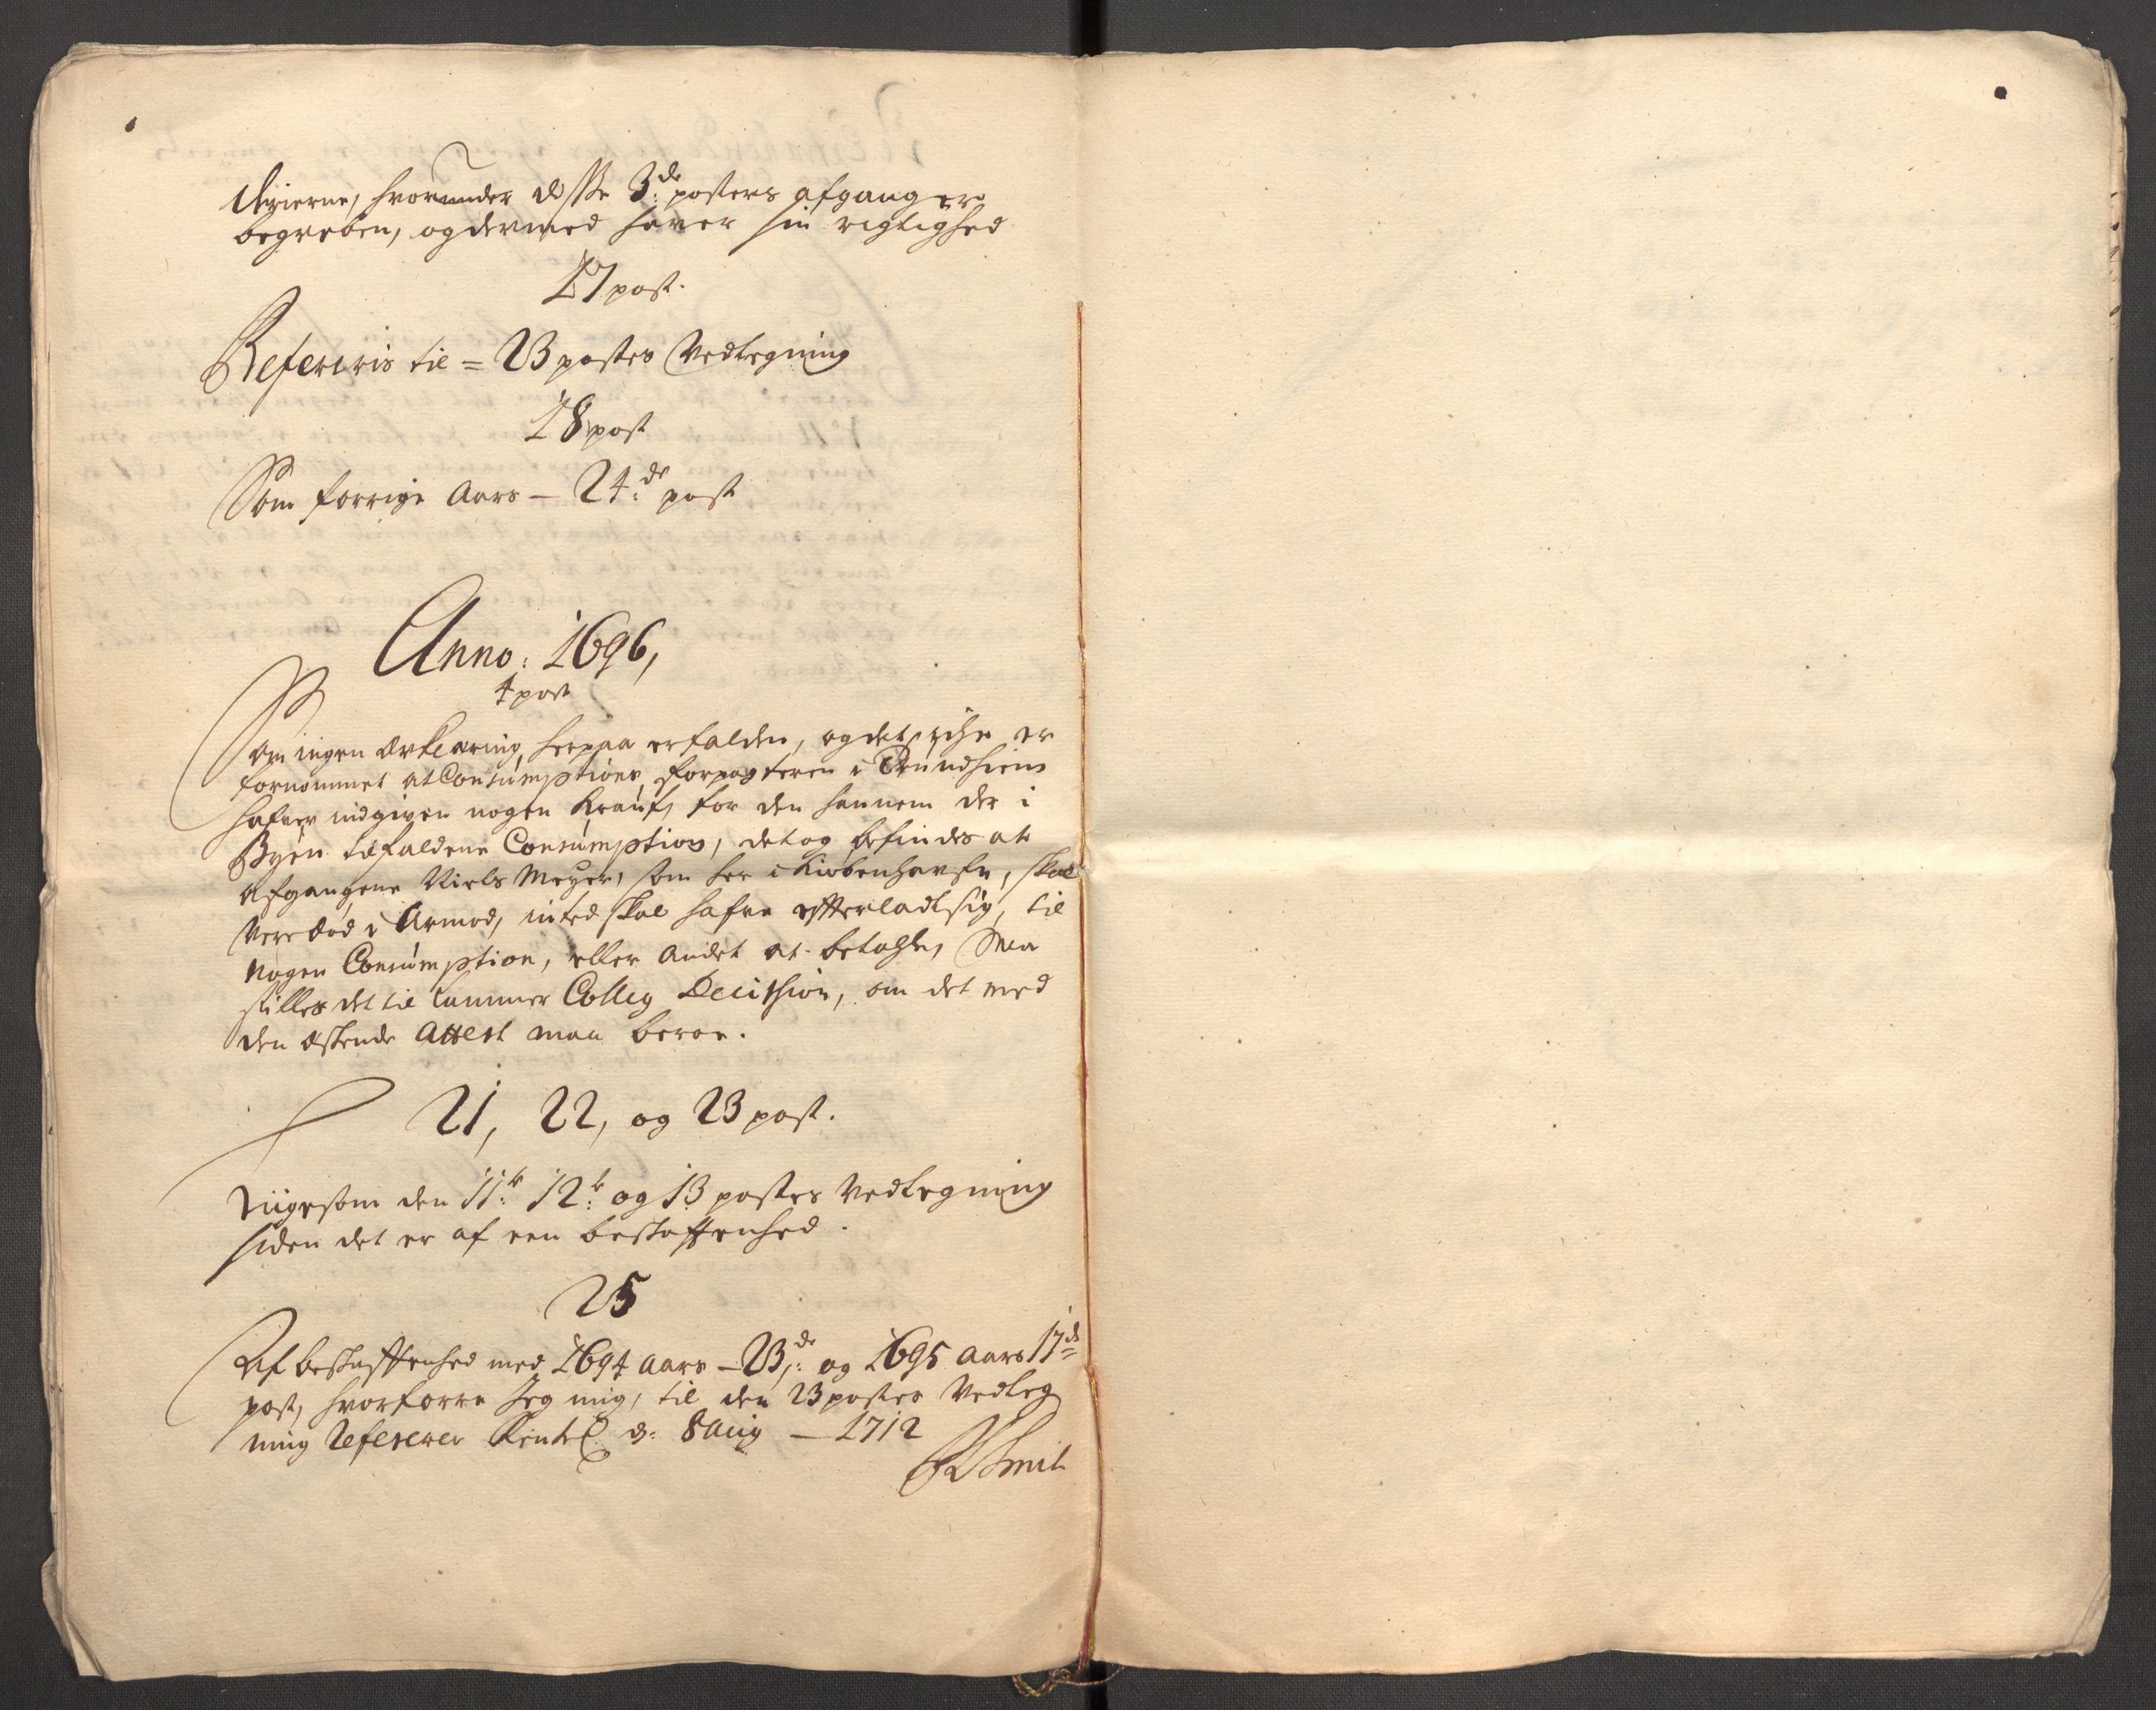 hvorunder disse 3de posters afgang er
begreben, og dermed haver sin rigtighed
17 post.
Refereris til = 23 postes Vedtegning
18 post
Som forrige Aars – 24de post
Anno: 1696,
4 post
Som ingen Erklering herpaa erfalden, og det iche er
fornommet at Consumptions forpagteren i Trundhiem
hafver indgiven nogen Krauf, for den hannem der i
Byen tilfaldene Consumption, det og befindes at
afgangene Niels Meyer, som her i Kiøbenhavfn, skal
vere død i Armod, inted skal hafve efterladt sig, til
nogen Consumption, eller Andet at betahle, Saa
stilles det til Cammer Colleg Decission, om det med
den æskende Attest maa beroe.
21, 22, og 23 post.
Liigesom den 11te 12te og 13 postes Vedtegning
siden det er af een beskaffenhed.
25
Af beskaffenhed med 1694 Aars – 23de og 1695 Aars 17de
post, hvorforre Jeg mig, til den 23 postes Vedteg
ning Refererer Rentek: d: 8 Aug – 1712
Smit